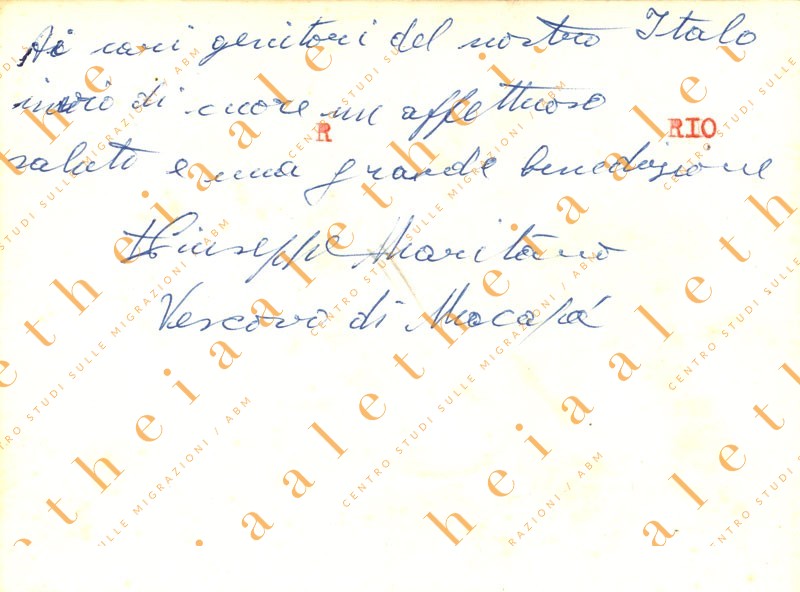 Ai cari genitori del nostro Italo
invio di cuore un affettuoso
R RIO
saluto e una grande benedizione
+ Giuseppe Maritano
Vescovo di Macapá
aletheia
CENTRO STUDI SULLE MIGRAZIONI / ABM